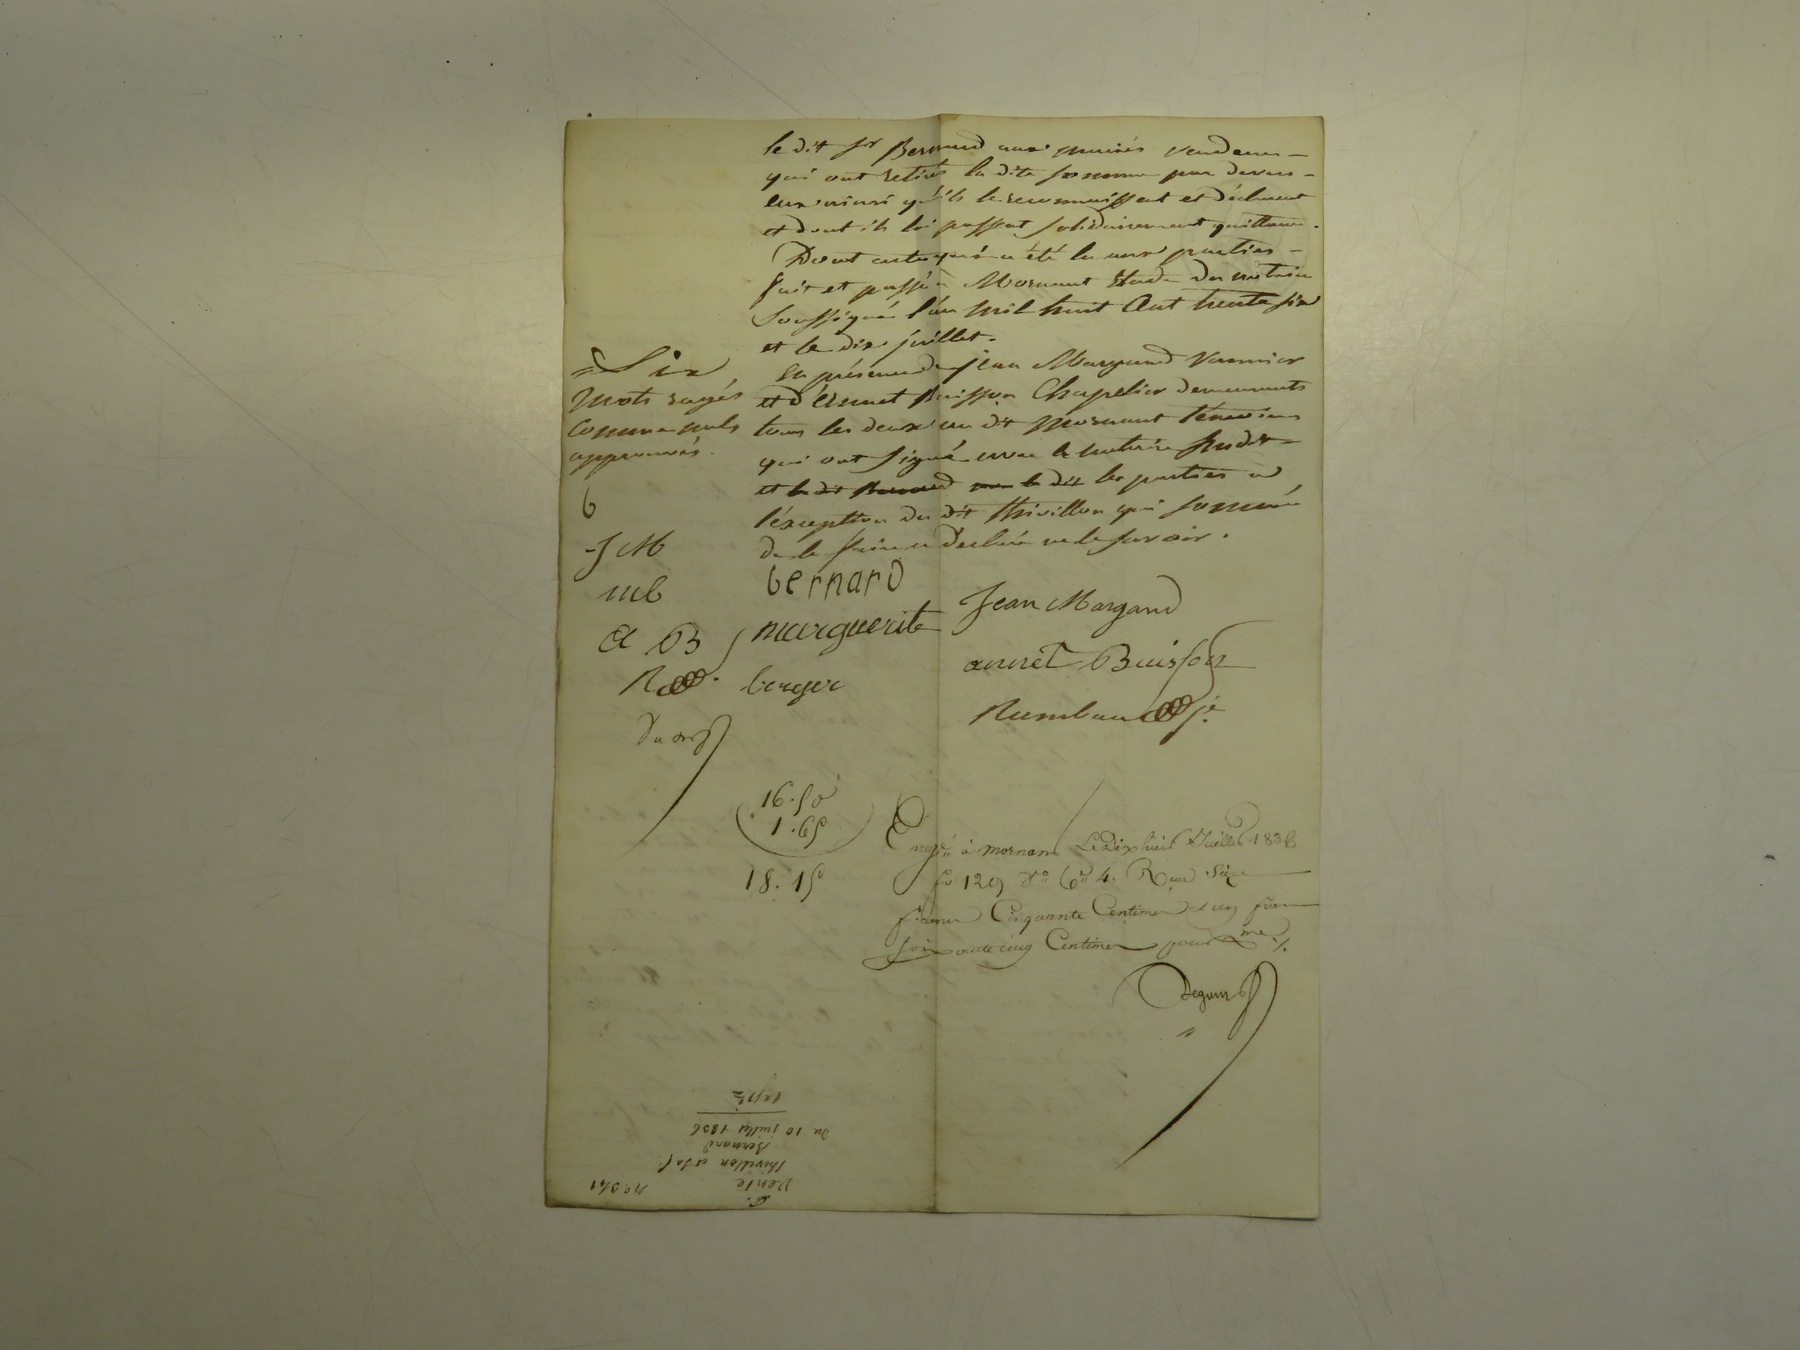 le dit sr Bernard aux mariés vendeurs
qui ont retiré la dite somme par devers
eux ainsi qu'ils le reconnaissent et déclarent
et dont ils lui passent solidairement quittance.
Dont acte qui a été lu aux parties
fait et passé à Mornant Etude du notaire
soussigné l'an mil huit Cent trente six
et le dix juillet.
En présence de jean Margand Vannier
et d'Ennet Buisson Chapelier demeurants
tous les deux au dit Mornant témoins
qui ont signé avec le notaire susdit
et le dit Bernard le dit les parties a
l'exception du dit thivillon qui sommé
de le faire a déclaré ne le savoir.
= Six
mots rayés
comme nuls
approuvés.
b
J M
mb
a B
R
bernard
marguerite
berger
Jean Margand
annet Buisson
Rambaud je
16.50
1.65
18.15
Enregé à mornant Le Dix huit Juillet 1836
fo 129 Vo Cd 4. Reçu Seize
francs Cinquante Centimes & un franc
soixante cinq Centimes pour Xme ./.
No 541
Vente
thivillon et sa f.
Bernard
du 10 juillet 1836